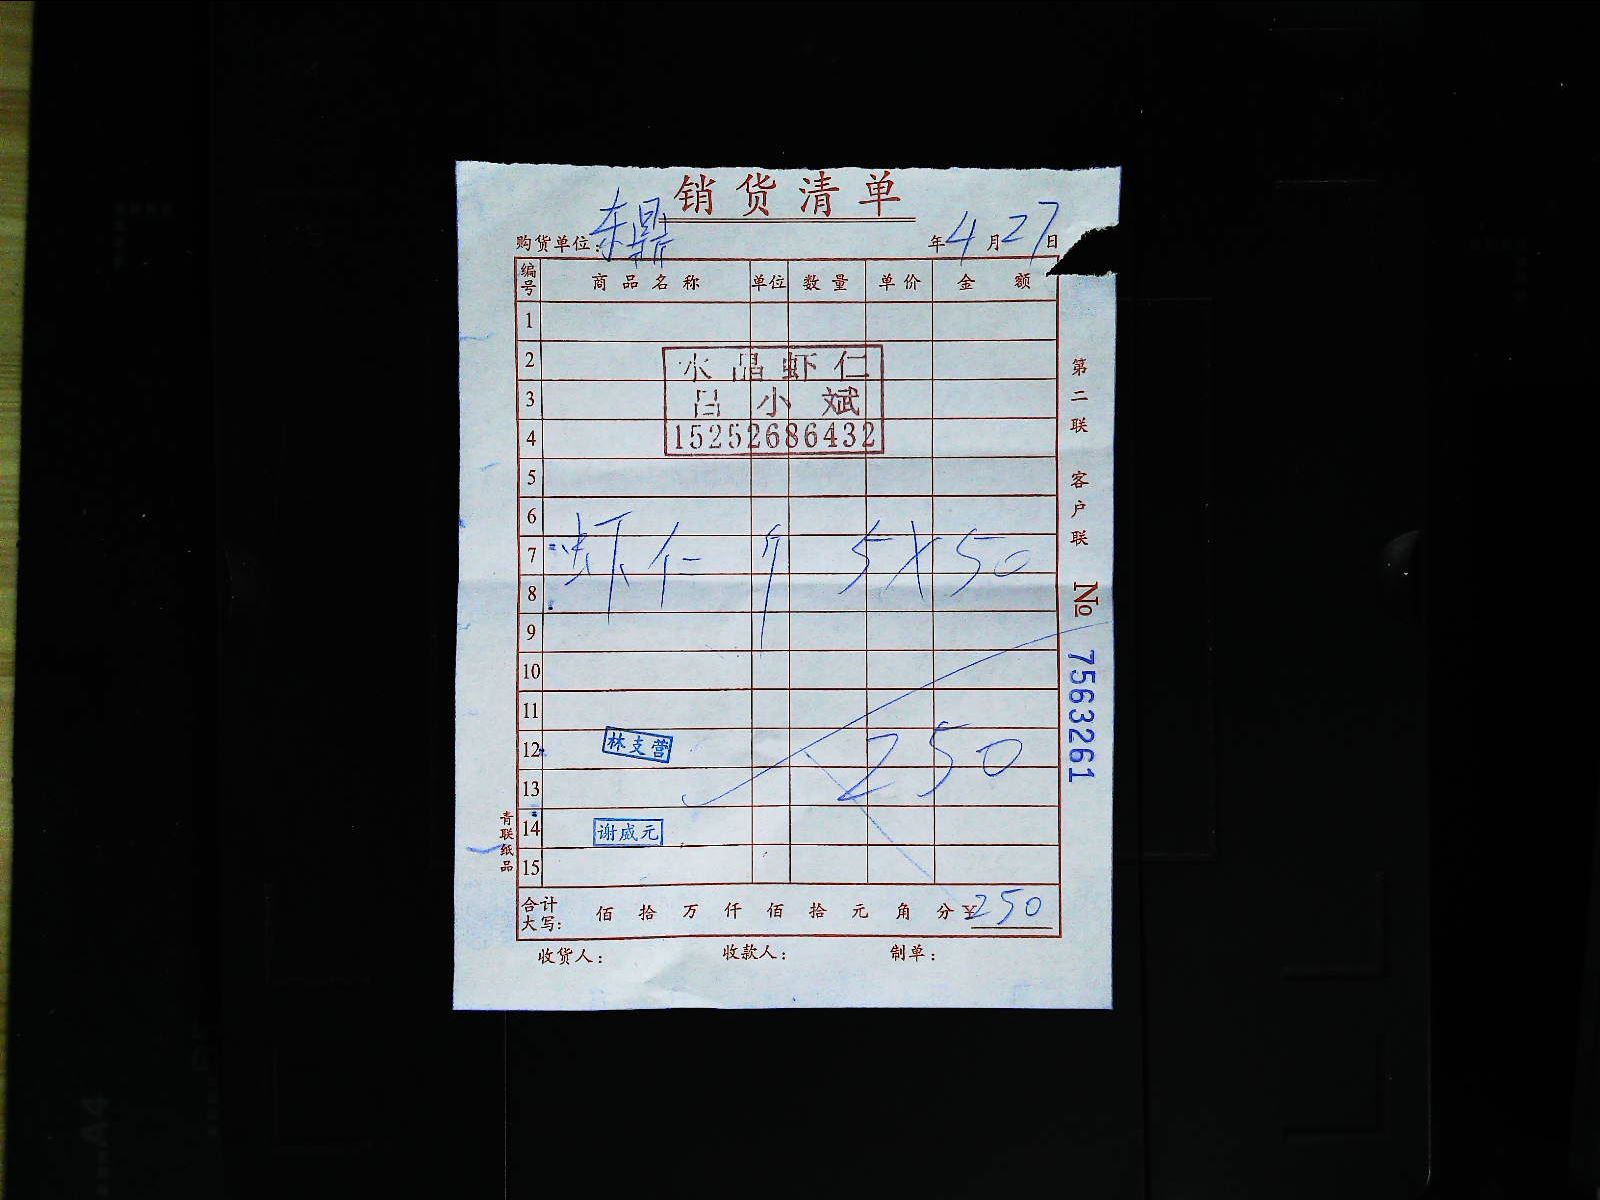 销货清单
购货单位：东鼎 年4月27日
编号 商品名称 单位 数量 单价 金额
1
2
3
4
水晶虾仁
吕小斌
15252686432
5
6
7 虾仁 斤 5×50
8
9
10
11
12 250
林支营
13
14
谢威元
15
合计大写： 佰 拾 万 仟 佰 拾 元 角 分 ¥250
收货人： 收款人： 制单：
第二联 客户联
№ 7563261
青联纸品